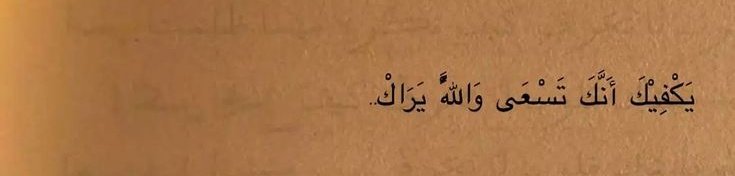 يَكْفِيْكَ أَنَّكَ تَسْعَى وَاللهُ يَرَاكْ..